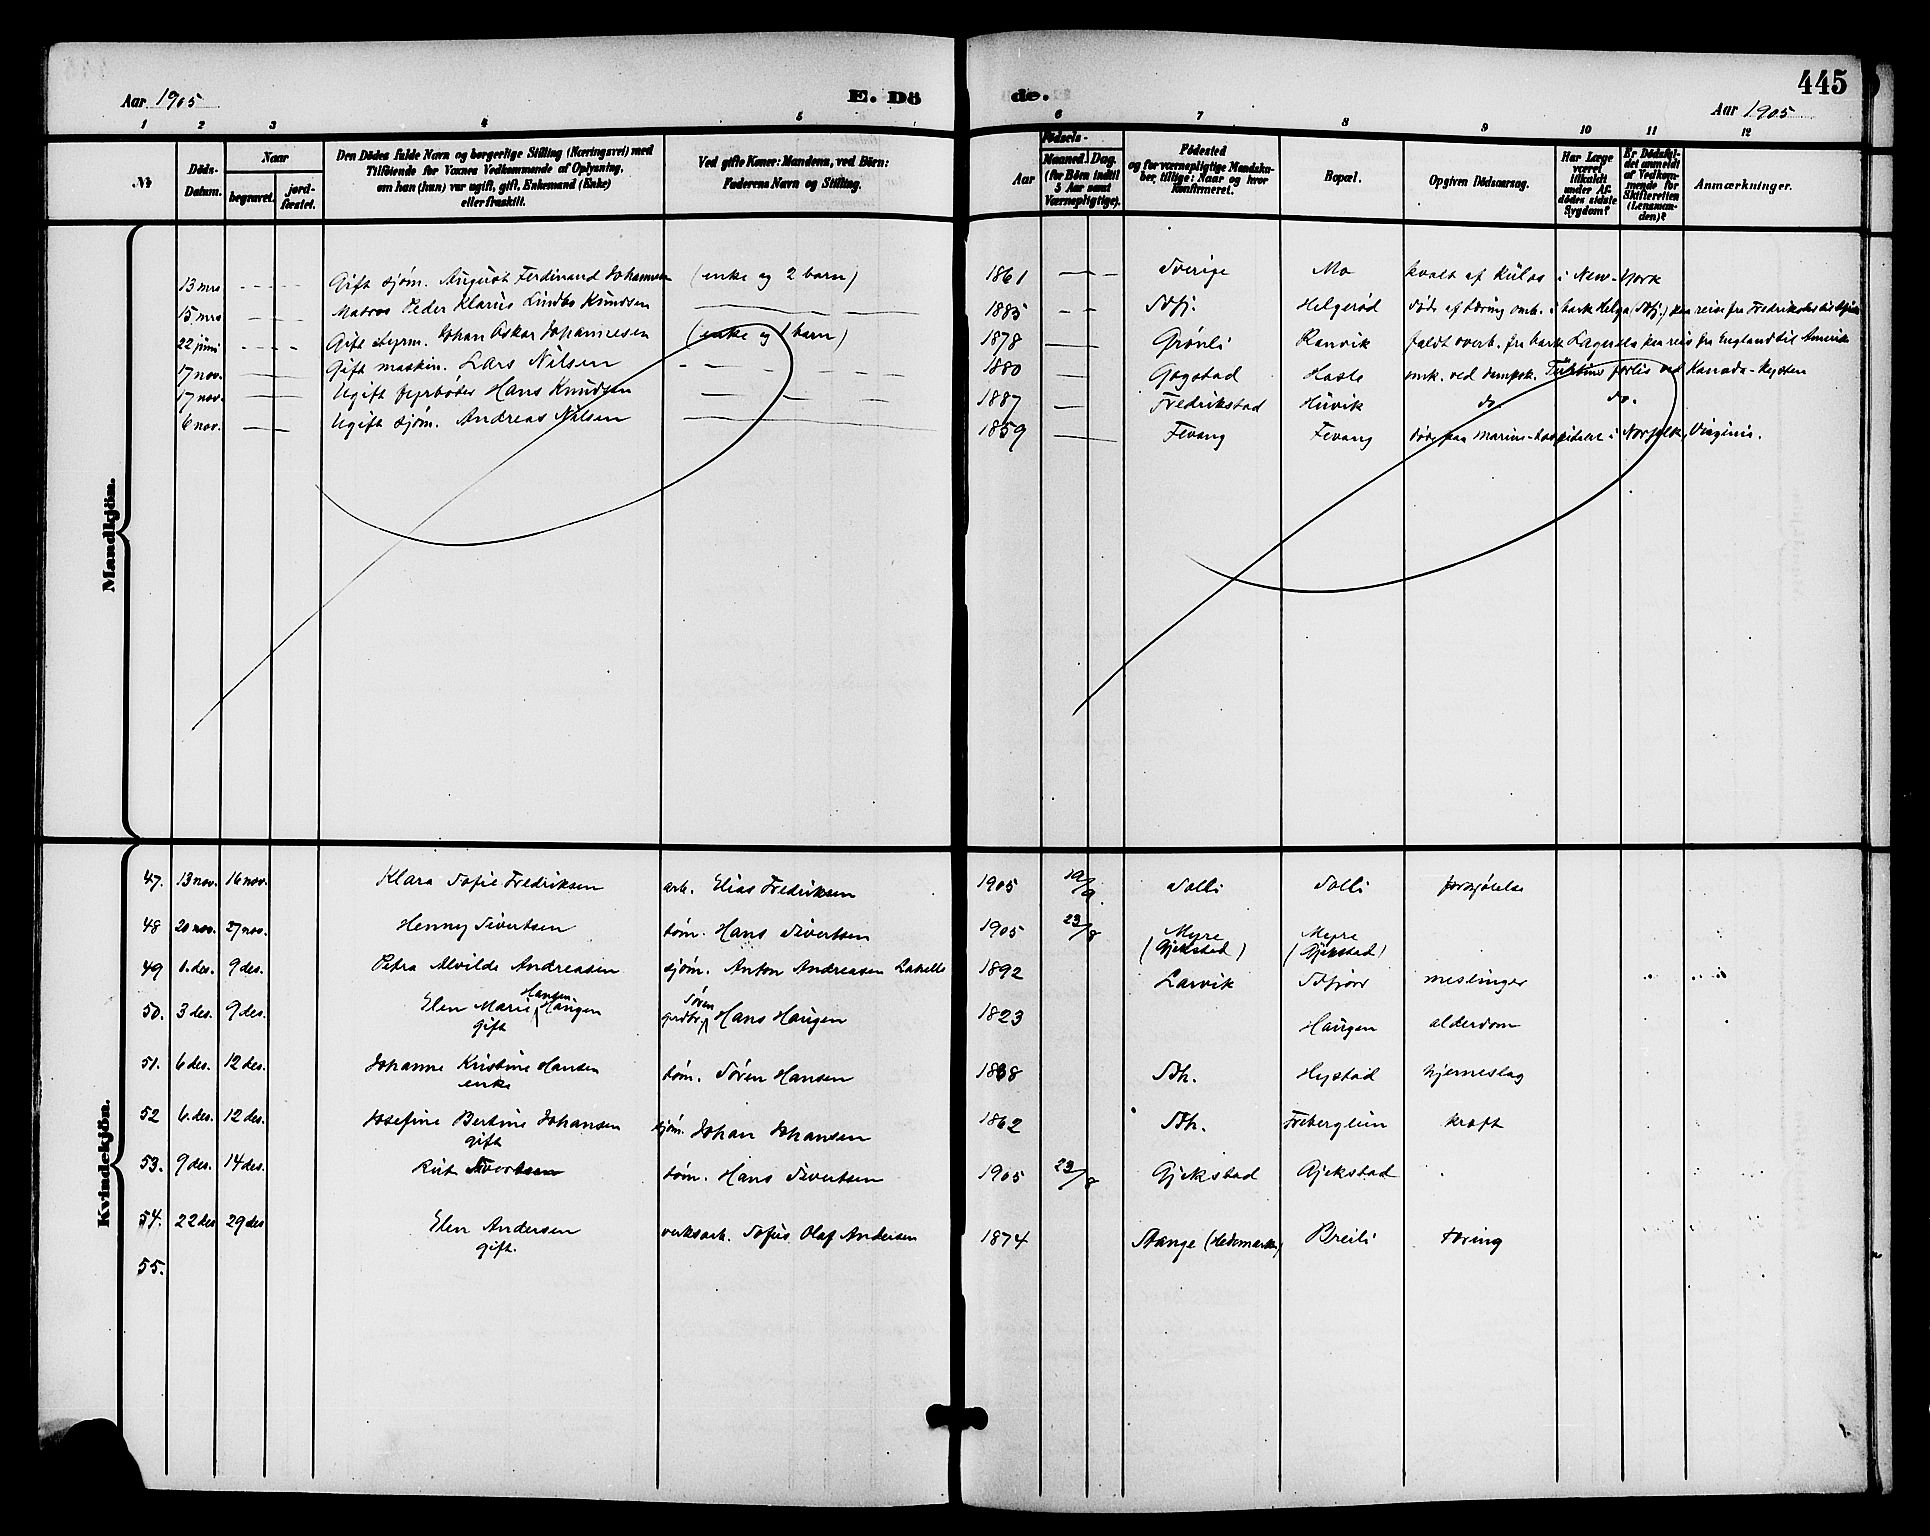 445
Aar 1905
E. Dö
de.
Aar 1905
1 2 3 4 5 6 7 8 9 10 11 12
№
Döds-Datum.
Naar
begravet.
jord-fæstet.
Den Dödes fulde Navn og borgerlige Stilling (Næringsvei) med
Tilföiende for Voxnes Vedkommende af Oplysning,
om han (hun) var ugift, gift, Enkemand (Enke)
eller fraskilt.
Ved gifte Koner: Mandens, ved Börn:
Faderens Navn og Stilling.
Födsels-
Aar
Maaned. Dag.
(for Börn indtil
5 Aar samt
Værnepligtige).
Födested
og for værnepligtige Mandska-
ber, tillige: Naar og hvor
Konfirmeret.
Bopæl.
Opgiven Dödsaarsag.
Har Læge
været
tilkaldt
under Af-
dödes sidste
Sygdom?
Er Dödsfal-
det anmeldt
af Vedkom-
mende for
Skifteretten
(Lensman-
den)?
Anmærkninger.
Mandkjön.
13 mrs Gift sjøm. August Ferdinand Johannsen (enke og 2 barn) 1861 Sverige Mo kvalt af kulos i New-York
15 mrs Matros Peder Klarius Lindbo Knudsen 1885 Sdfj. Helgerød død af tæring omb. i bark Helga (Sdfj.) paa reise fra Fredrikstad til
22 juni Gift styrm. Johan Oskar Johannesen (enke og 1 barn) 1878 Grønli Ranvik faldt overb. fra bark Lagerdla paa reis fra England til Amerik
17 nov. Gift maskin. Lars Nilsen 1880 Gogstad Hasle omk. ved dampsk. forlis ved Kanada-kysten
17 nov. Ugift fyrbøder Hans Knudsen 1887 Fredrikstad Huvik do. do.
6 nov. Ugift sjøm. Andreas Nilsen 1859 Fevang Fevang døde paa marine-hospitalet i Norfolk, Virginia.
Kvindekjön.
47. 13 nov. 16 nov. Klara Sofie Fredriksen arb. Elias Fredriksen 1905 19/9. Solli Solli forkjølelse
48 20 nov. 27 nov. Henny Sivertsen tøm. Hans Sivertsen 1905 23/8 Myre (Gjekstad) Myre (Gjekstad)
49 1. des. 9 des. Petra Alvilde Andreasen sjøm. Anton Andreasen 1892 Larvik meslinger
50. 3 des. 9 des. Elen Marie Hansen Haugen gift grdbr. Søren Hans Haugen 1823 Haugen alderdom
51. 6 des. 12 des. Johanne Kristine Hansen enke tøm. Søren Hansen 1838 Sdh. Hystad hjerneslag
52 6. des. 12 des. Josefine Bertine Johansen gift sjøm. Johan Johansen 1862 Sdh. kræft
53. 9 des. 14 des. Rut Sivertsen tøm. Hans Sivertsen 1905 23/8 Gjekstad Gjekstad
54. 22 des 29 des Elen Andersen gift. verksarb. Sofus Olaf Andersen 1874 Stange (Hedemarken) Breili tæring
55.